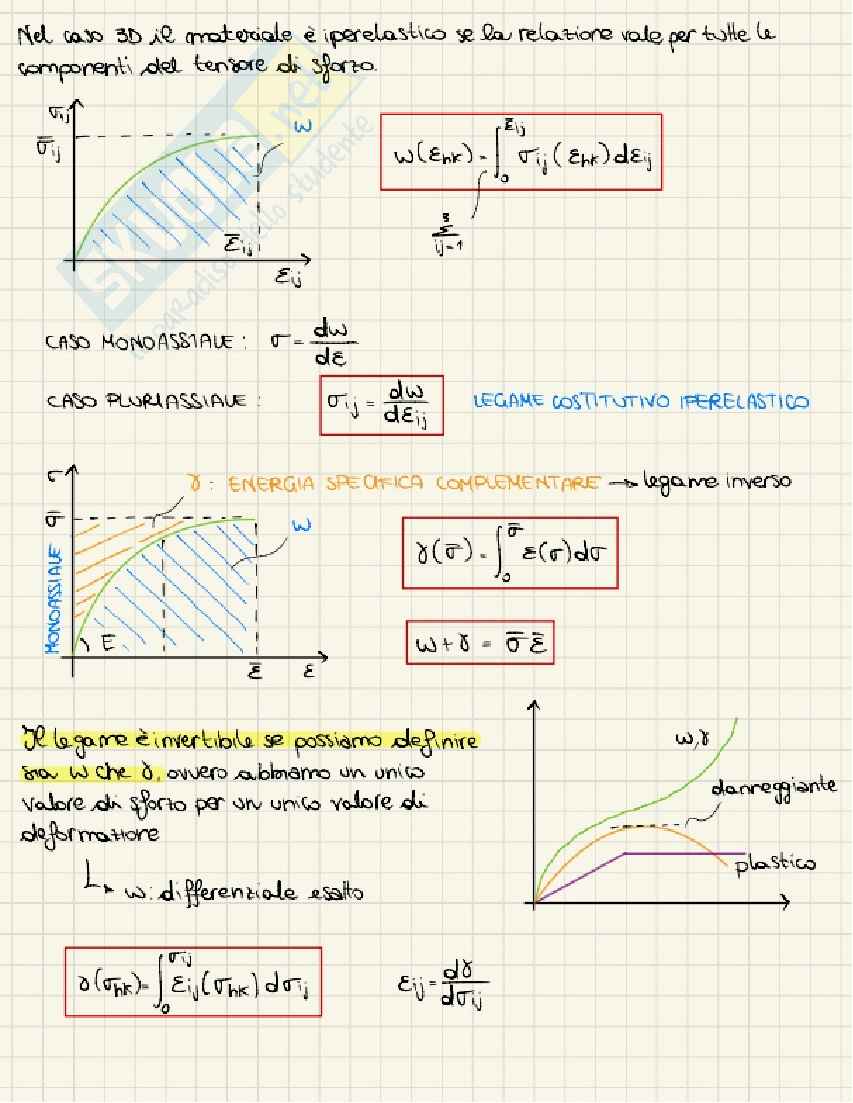 Nel caso 3D il materiale è iperelastico se la relazione vale per tutte le
componenti del tensore di sforzo.
σij
σ̅ij
w
ε̅ij
εij
w(εhk) = ∫₀^ε̅ij σij(εhk) dεij
3
Σ
ij=1
SKUOLA.net
il paradiso dello studente
CASO MONOASSIALE: σ = dw/dε
CASO PLURIASSIALE: σij = dw/dεij LEGAME COSTITUTIVO IPERELASTICO
σ
γ: ENERGIA SPECIFICA COMPLEMENTARE → legame inverso
σ̅
w
MONOASSIALE
E
ε̅
ε
γ(σ̅) = ∫₀^σ̅ ε(σ) dσ
w + γ = σ̅ ε̅
Il legame è invertibile se possiamo definire
sia w che γ, ovvero abbiamo un unico
valore di sforzo per un unico valore di
deformazione
↳ w: differenziale esatto
w,γ
danneggiante
plastico
γ(σhk) = ∫₀^σij εij(σhk) dσij
εij = dγ/dσij